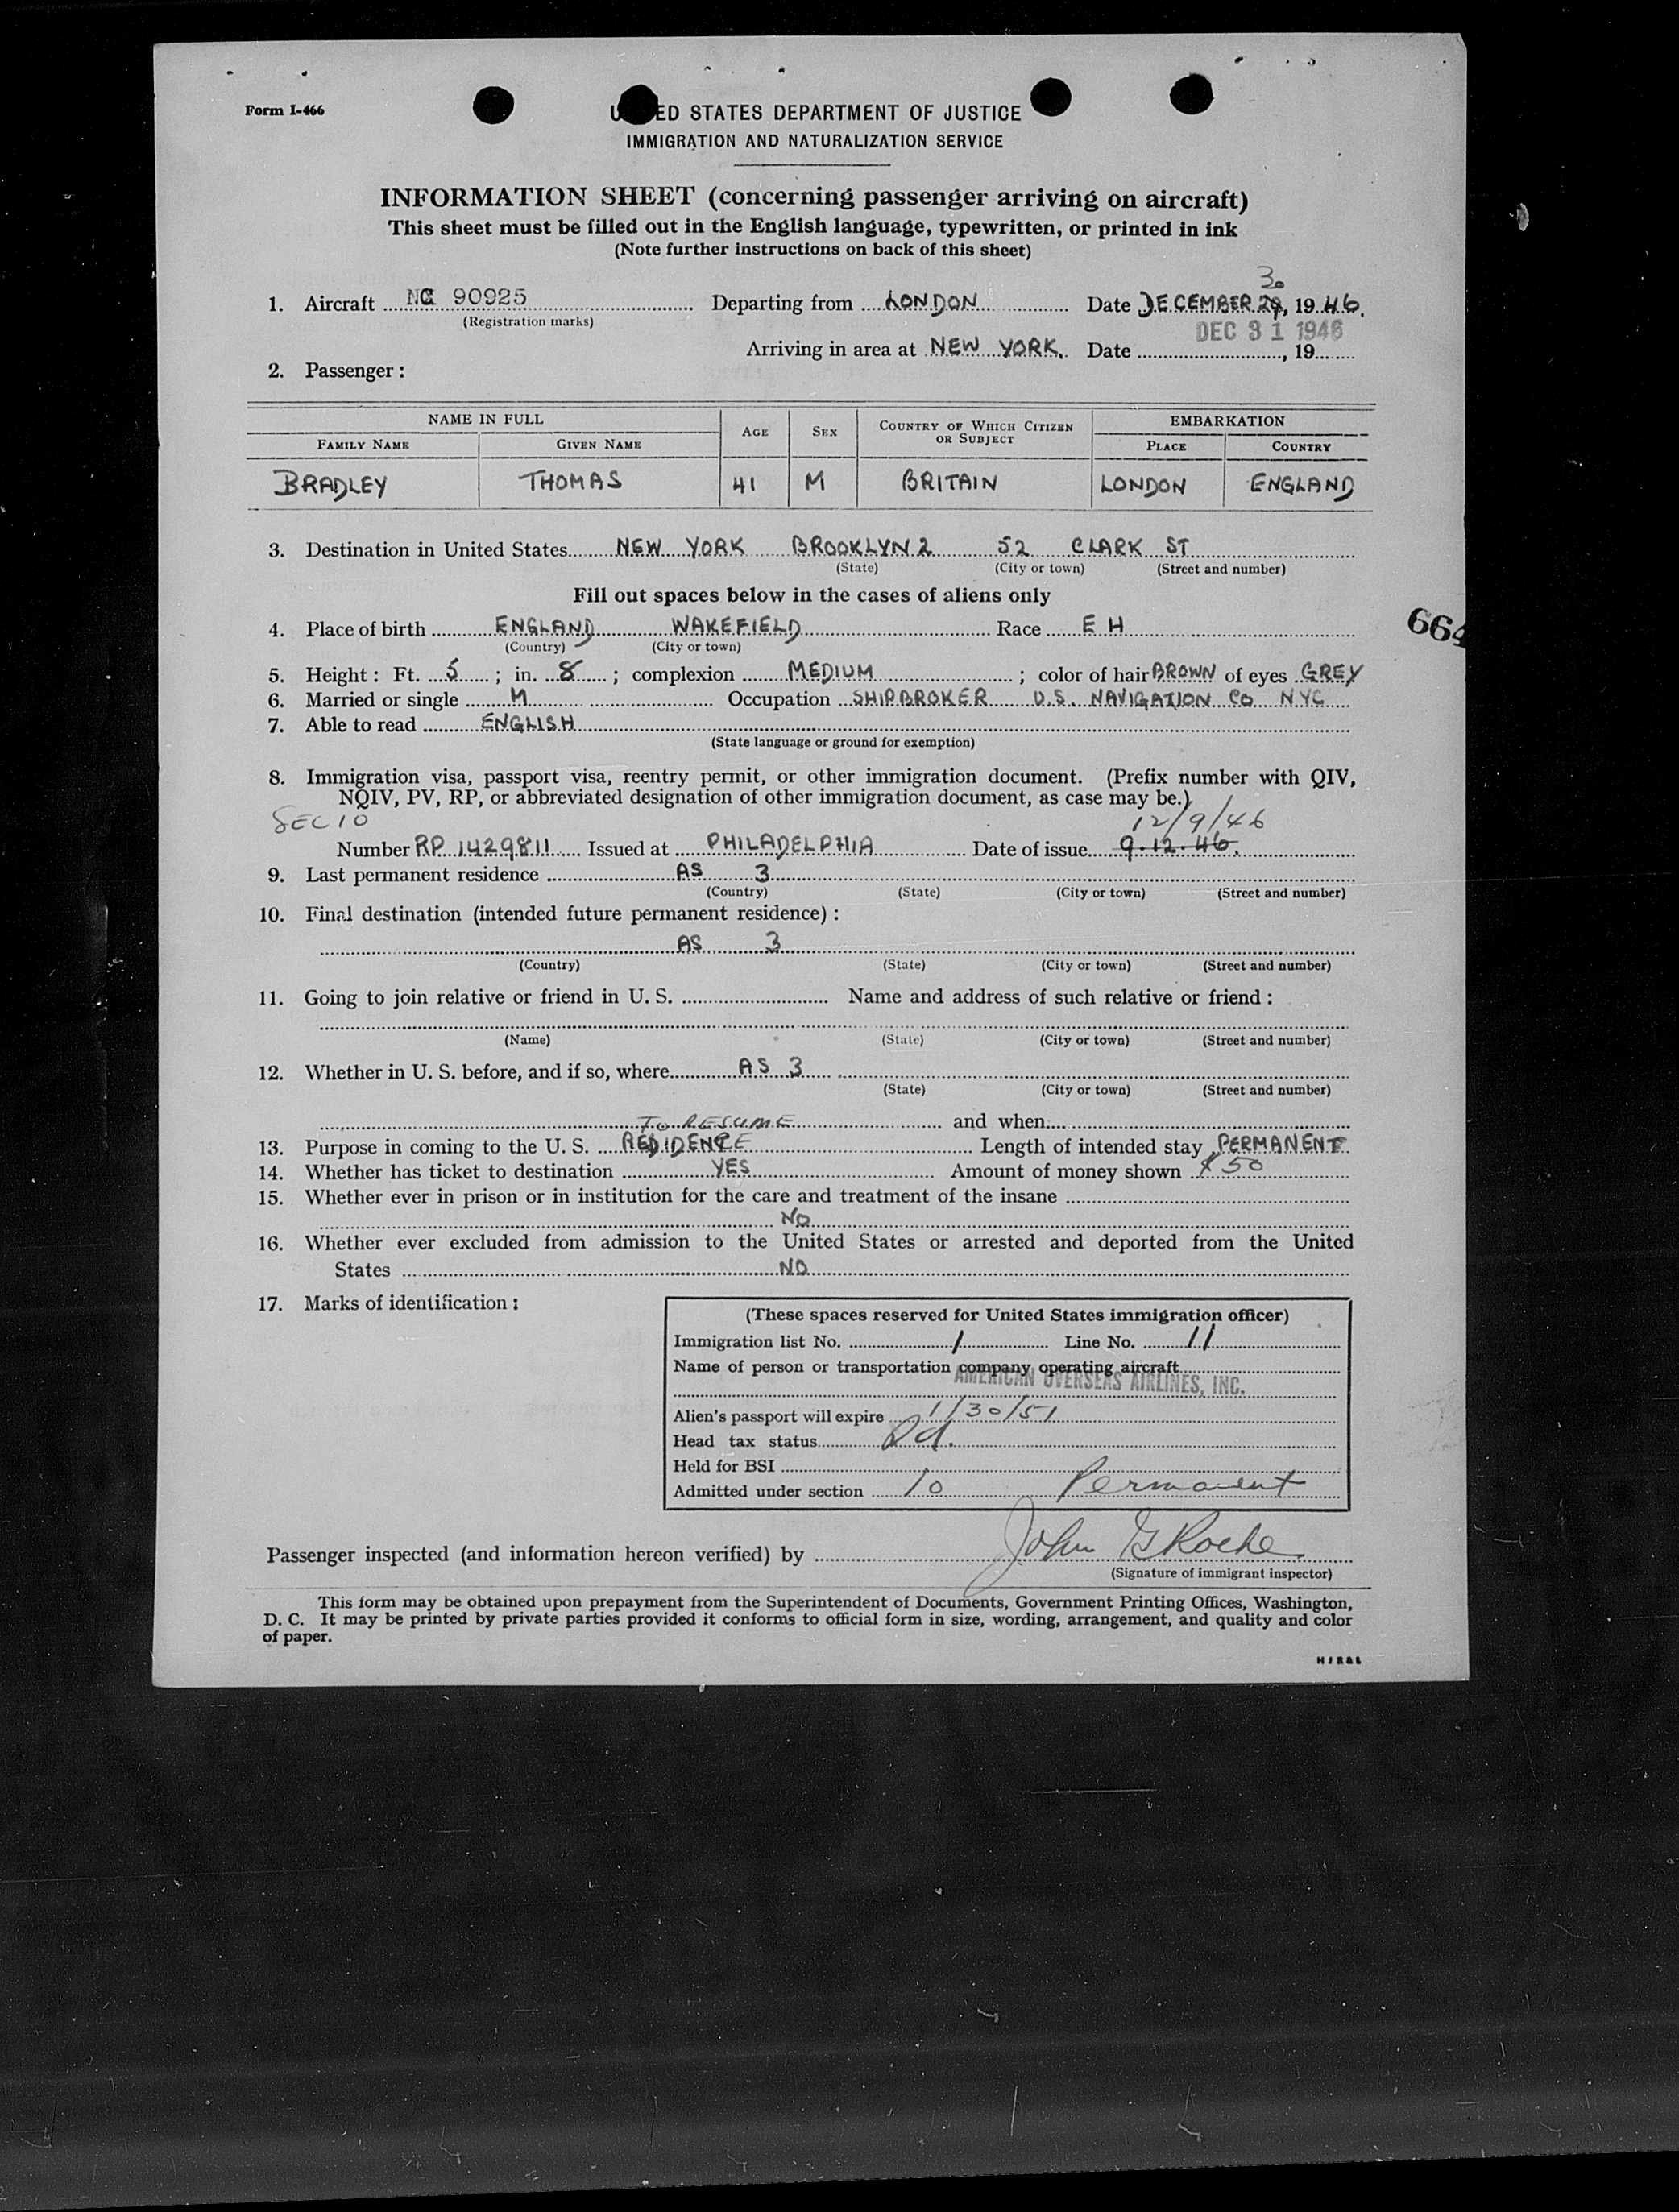 Form I-466
ED STATES DEPARTMENT OF JUSTICE
IMMIGRATION AND NATURALIZATION SERVICE
INFORMATION SHEET (concerning passenger arriving on aircraft)
This sheet must be filled out in the English language, typewritten, or printed in ink
(Note further instructions on back of this sheet)
30
1. Aircraft NC 90925 Departing from LONDON Date DECEMBER 29, 19 46.
(Registration marks)
DEC 31 1946
Arriving in area at NEW YORK. Date , 19
2. Passenger :
NAME IN FULL AGE SEX COUNTRY OF WHICH CITIZEN OR SUBJECT EMBARKATION
FAMILY NAME GIVEN NAME PLACE COUNTRY
BRADLEY THOMAS 41 M BRITAIN LONDON ENGLAND
3. Destination in United States NEW YORK BROOKLYN 2 52 CLARK ST
(State) (City or town) (Street and number)
Fill out spaces below in the cases of aliens only
4. Place of birth ENGLAND WAKEFIELD Race E H
(Country) (City or town)
664
5. Height : Ft. 5 ; in. 8 ; complexion MEDIUM ; color of hair BROWN of eyes GREY
6. Married or single M Occupation SHIPBROKER U.S. NAVIGATION CO NYC
7. Able to read ENGLISH
(State language or ground for exemption)
8. Immigration visa, passport visa, reentry permit, or other immigration document. (Prefix number with QIV,
NQIV, PV, RP, or abbreviated designation of other immigration document, as case may be.)
SEC 10 12/9/46
Number RP 1429811 Issued at PHILADELPHIA Date of issue 9.12.46.
9. Last permanent residence AS 3
(Country) (State) (City or town) (Street and number)
10. Final destination (intended future permanent residence) :
AS 3
(Country) (State) (City or town) (Street and number)
11. Going to join relative or friend in U. S. Name and address of such relative or friend :
(Name) (State) (City or town) (Street and number)
12. Whether in U. S. before, and if so, where AS 3
(State) (City or town) (Street and number)
TO RESUME and when
13. Purpose in coming to the U. S. REDIDENCE Length of intended stay PERMANENT
14. Whether has ticket to destination YES Amount of money shown $50
15. Whether ever in prison or in institution for the care and treatment of the insane
NO
16. Whether ever excluded from admission to the United States or arrested and deported from the United
States NO
17. Marks of identification :
(These spaces reserved for United States immigration officer)
Immigration list No. 1 Line No. 11
Name of person or transportation company operating aircraft
AMERICAN OVERSEAS AIRLINES, INC.
Alien's passport will expire 1/30/51
Head tax status Pd.
Held for BSI
Admitted under section 10 Permanent
Passenger inspected (and information hereon verified) by John G Roche
(Signature of immigrant inspector)
This form may be obtained upon prepayment from the Superintendent of Documents, Government Printing Offices, Washington,
D. C. It may be printed by private parties provided it conforms to official form in size, wording, arrangement, and quality and color
of paper.